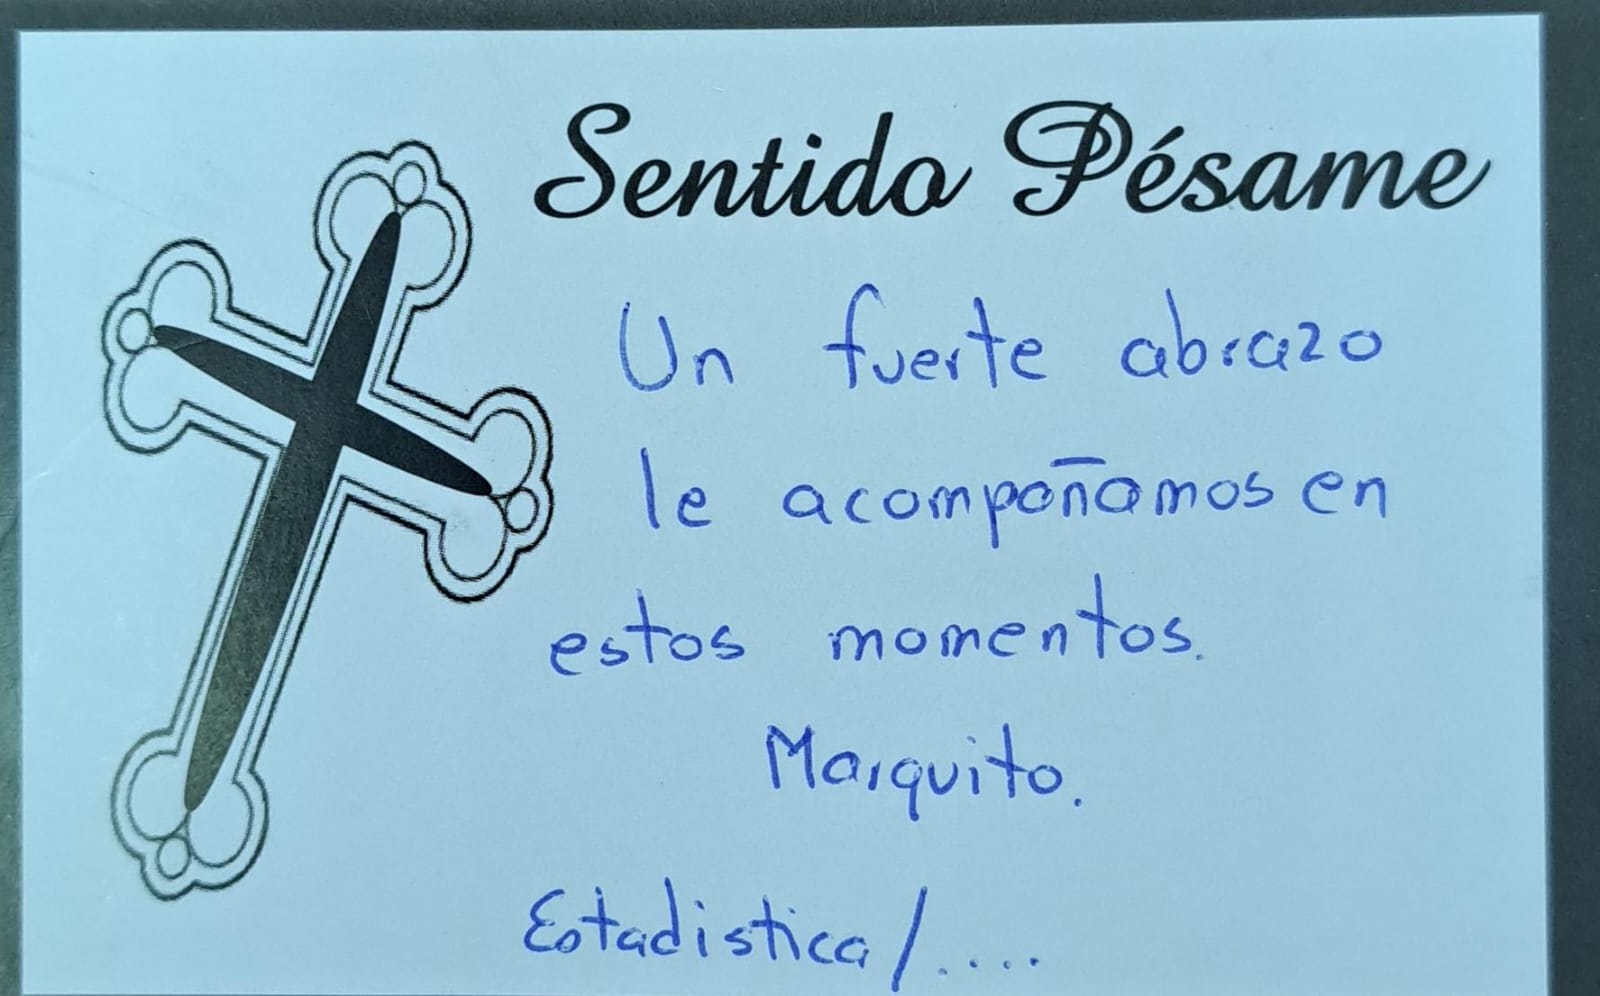 Sentido Pésame
Un fuerte abrazo
le acompañamos en
estos momentos.
Marquito.
Estadistica/....